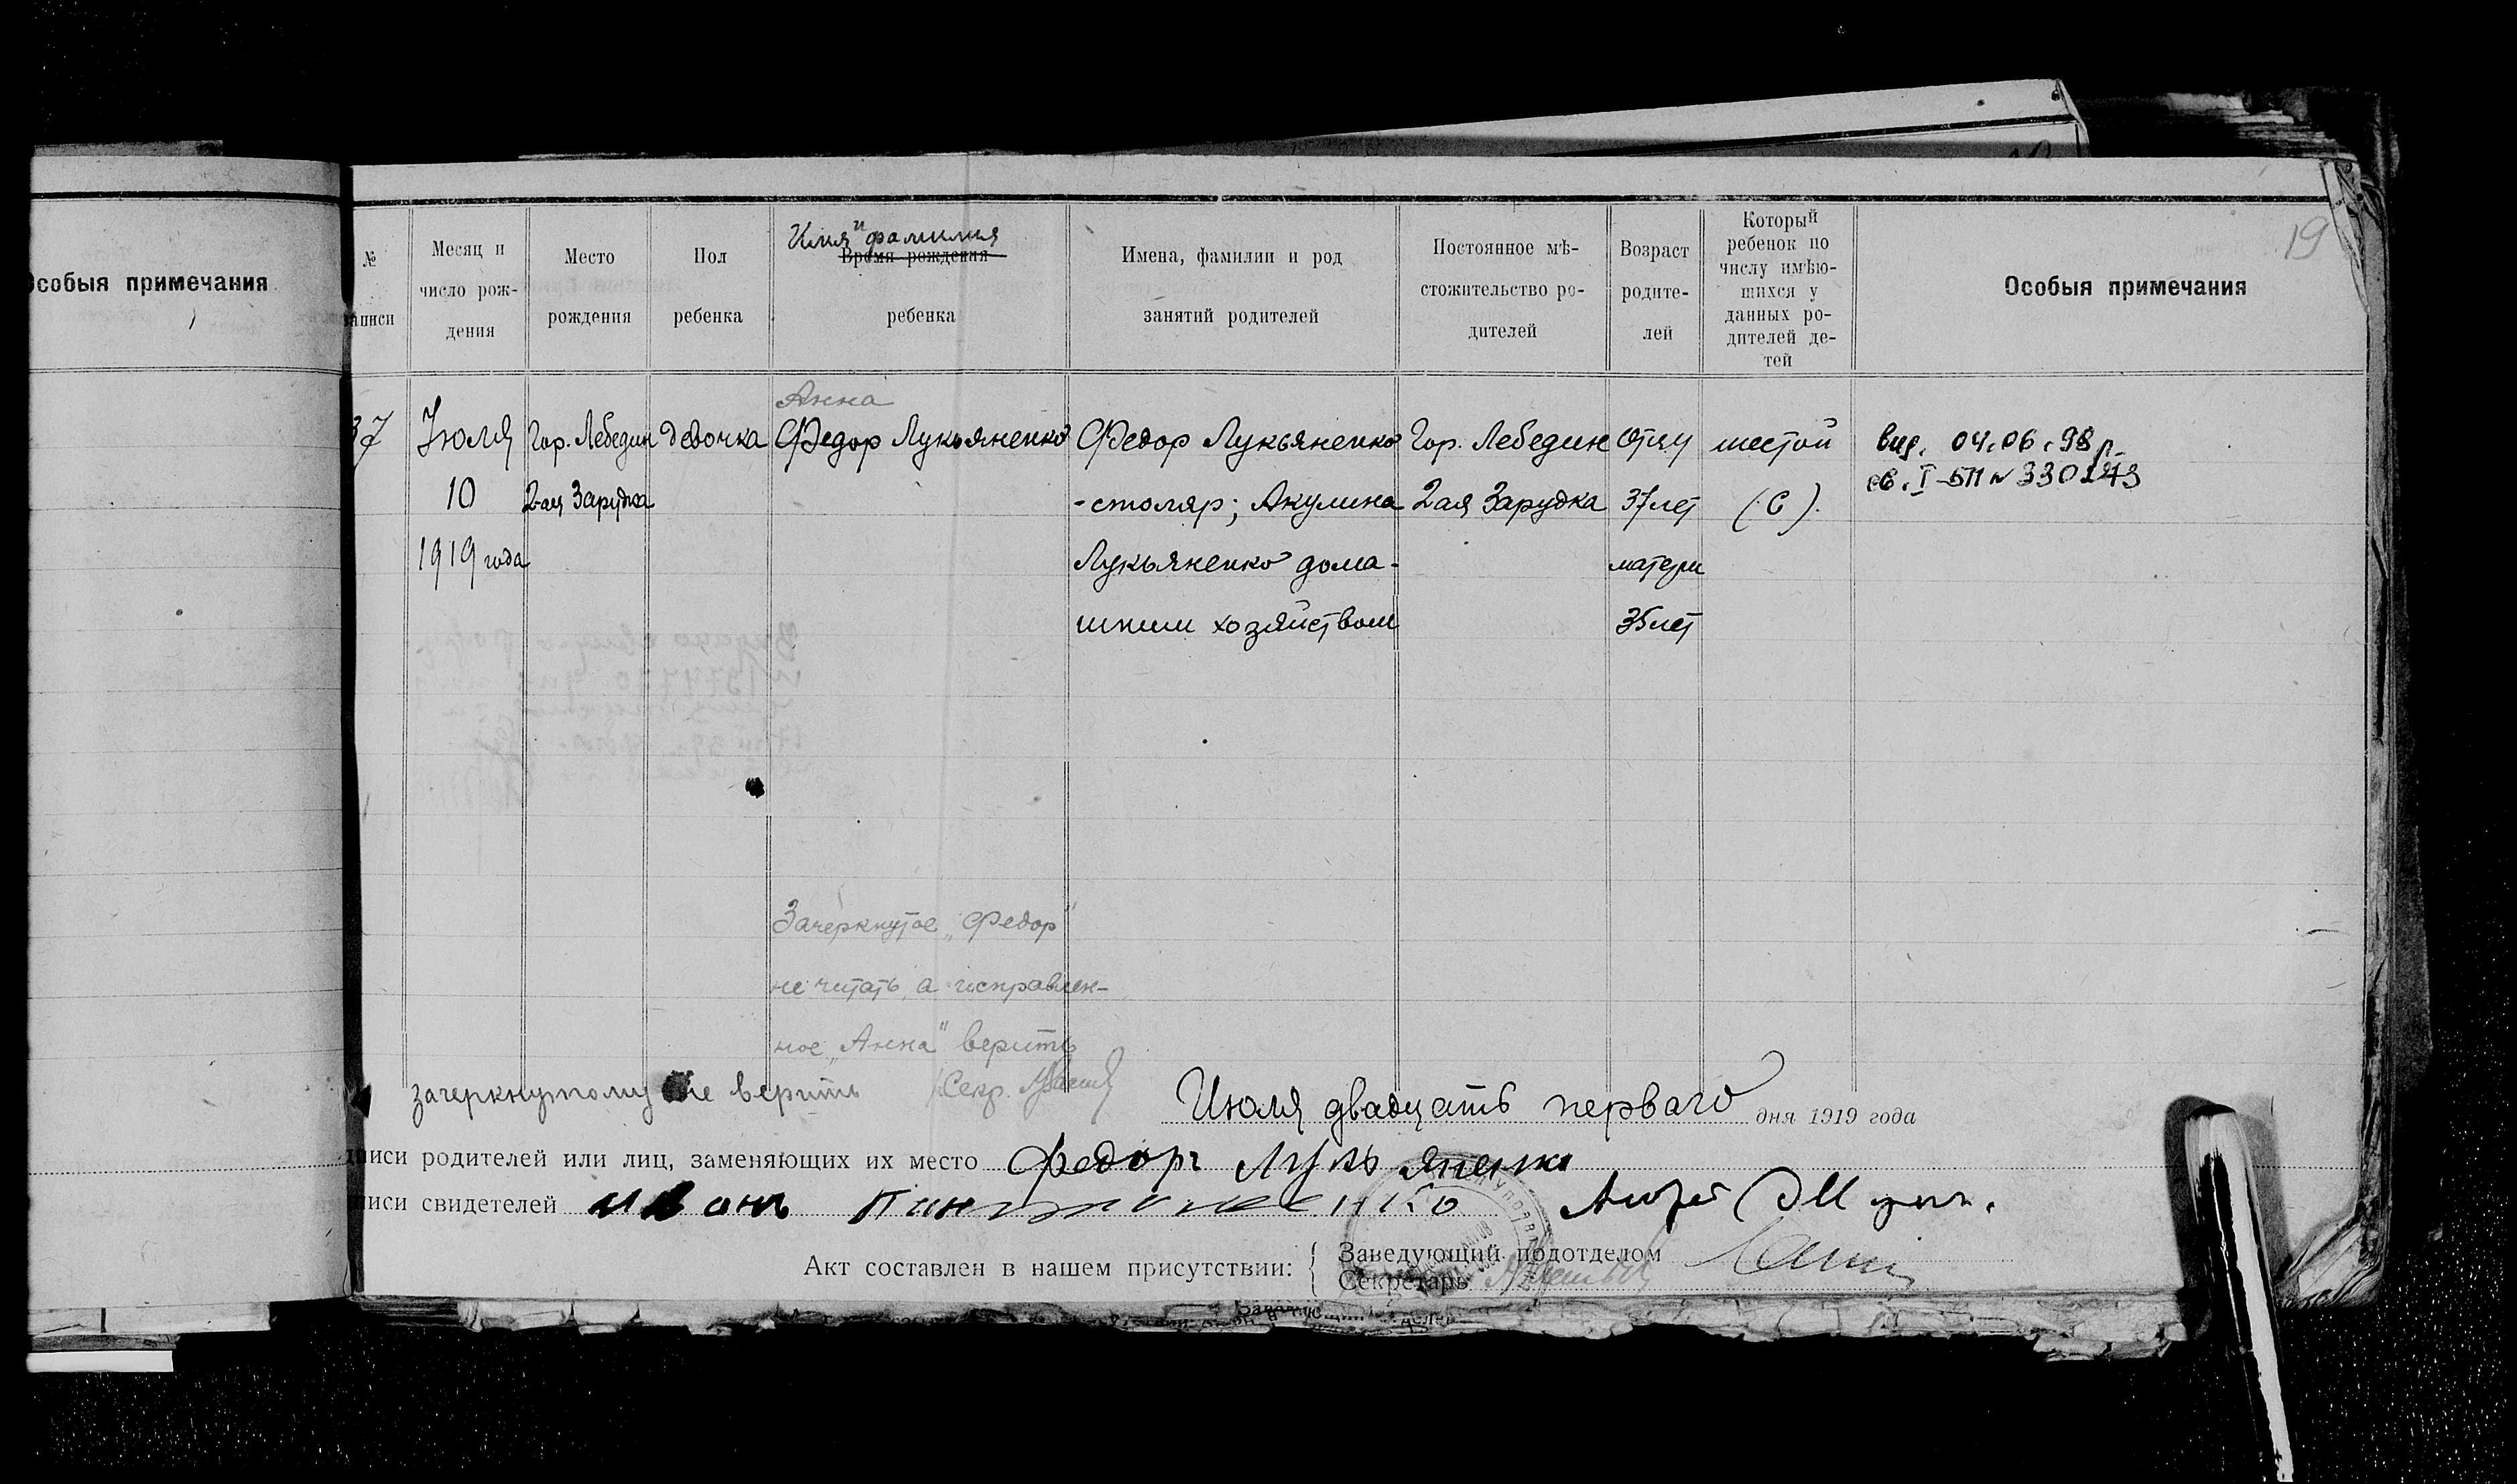 Особыя примечания
19
№ записи
Месяц и число рождения
Место рождения
Пол ребенка
Имя и фамилия
Время рождения ребенка
Имена, фамилии и род занятий родителей
Постоянное мѣстожительство родителей
Возраст родителей
Который ребенок по числу имѣющихся у данных родителей детей
Особыя примечания
Анна
37 Июля Гор. Лебедин девочка Федор Лукьяненко Федор Лукьяненко Гор. Лебедин Отцу шестой вид. 04.06.98 р.
10 2-ая Зарудка - столяр; Акулина 2ая Зарудка 37 лет (6). св. I-БП №330243
1919 года Лукьяненко дома- матери
шним хозяйством 35 лет
Зачеркнутое „Федор"
не читать, а исправлен-
ное „Анна" верить
зачеркнутому не верить Секр.
Июля двадцать первого дня 1919 года
дписи родителей или лиц, заменяющих их место Федоръ Лукьяненко
писи свидетелей Иванъ
Акт составлен в нашем присутствии:
Заведующий подотделом
Секретарь